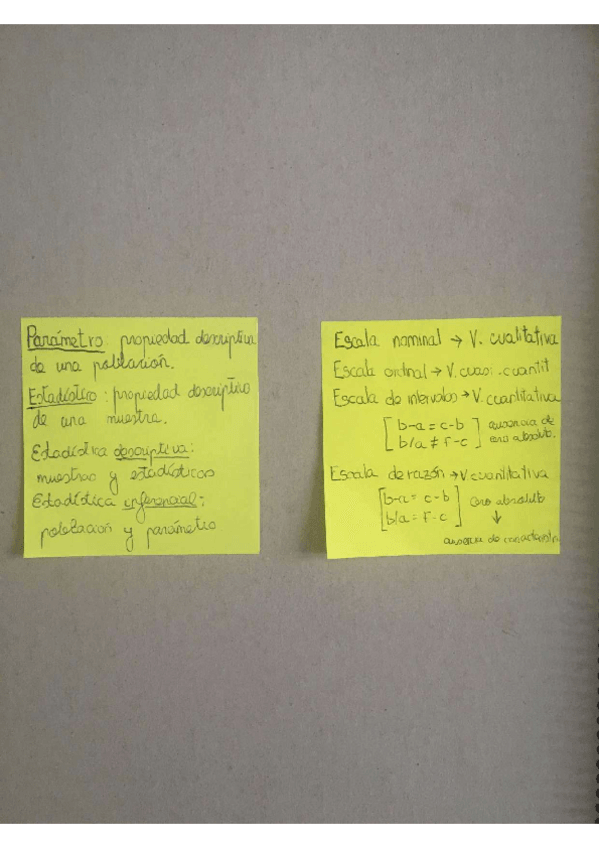 Parámetro: propiedad descriptiva
de una población.
Estadístico: propiedad descriptiva
de una muestra.
Estadística descriptiva:
muestras y estadísticos
Estadística inferencial:
población y parámetro
Escala nominal → V. cualitativa
Escala ordinal → V. cuasi.cuantit
Escala de intervalos → V. cuantitativa
[b-a = c-b] ausencia de
[b/a ≠ r-c] cero absolut.
Escala de razón → V cuantitativa
[b-a = c-b] cero absoluto
[b/a = r-c] ↓
ausencia de